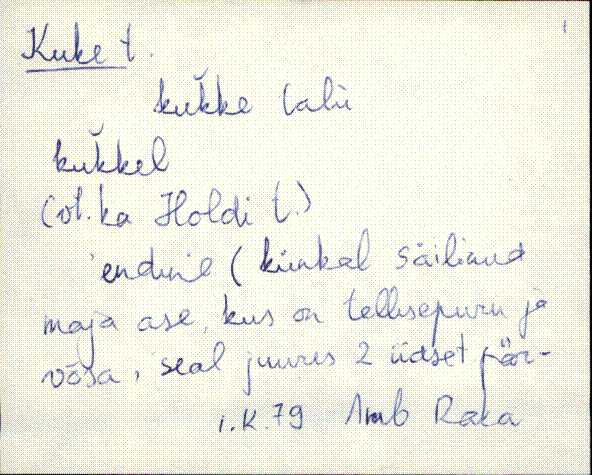 Kuke t.
kukke talu
kukkel
(vt. ka Holdi t.)
endine (künkal säilinud
maja ase, kus on tellisepuru ja
võsa, seal juures 2 üdset pär-
i.K.79 Amb Raka